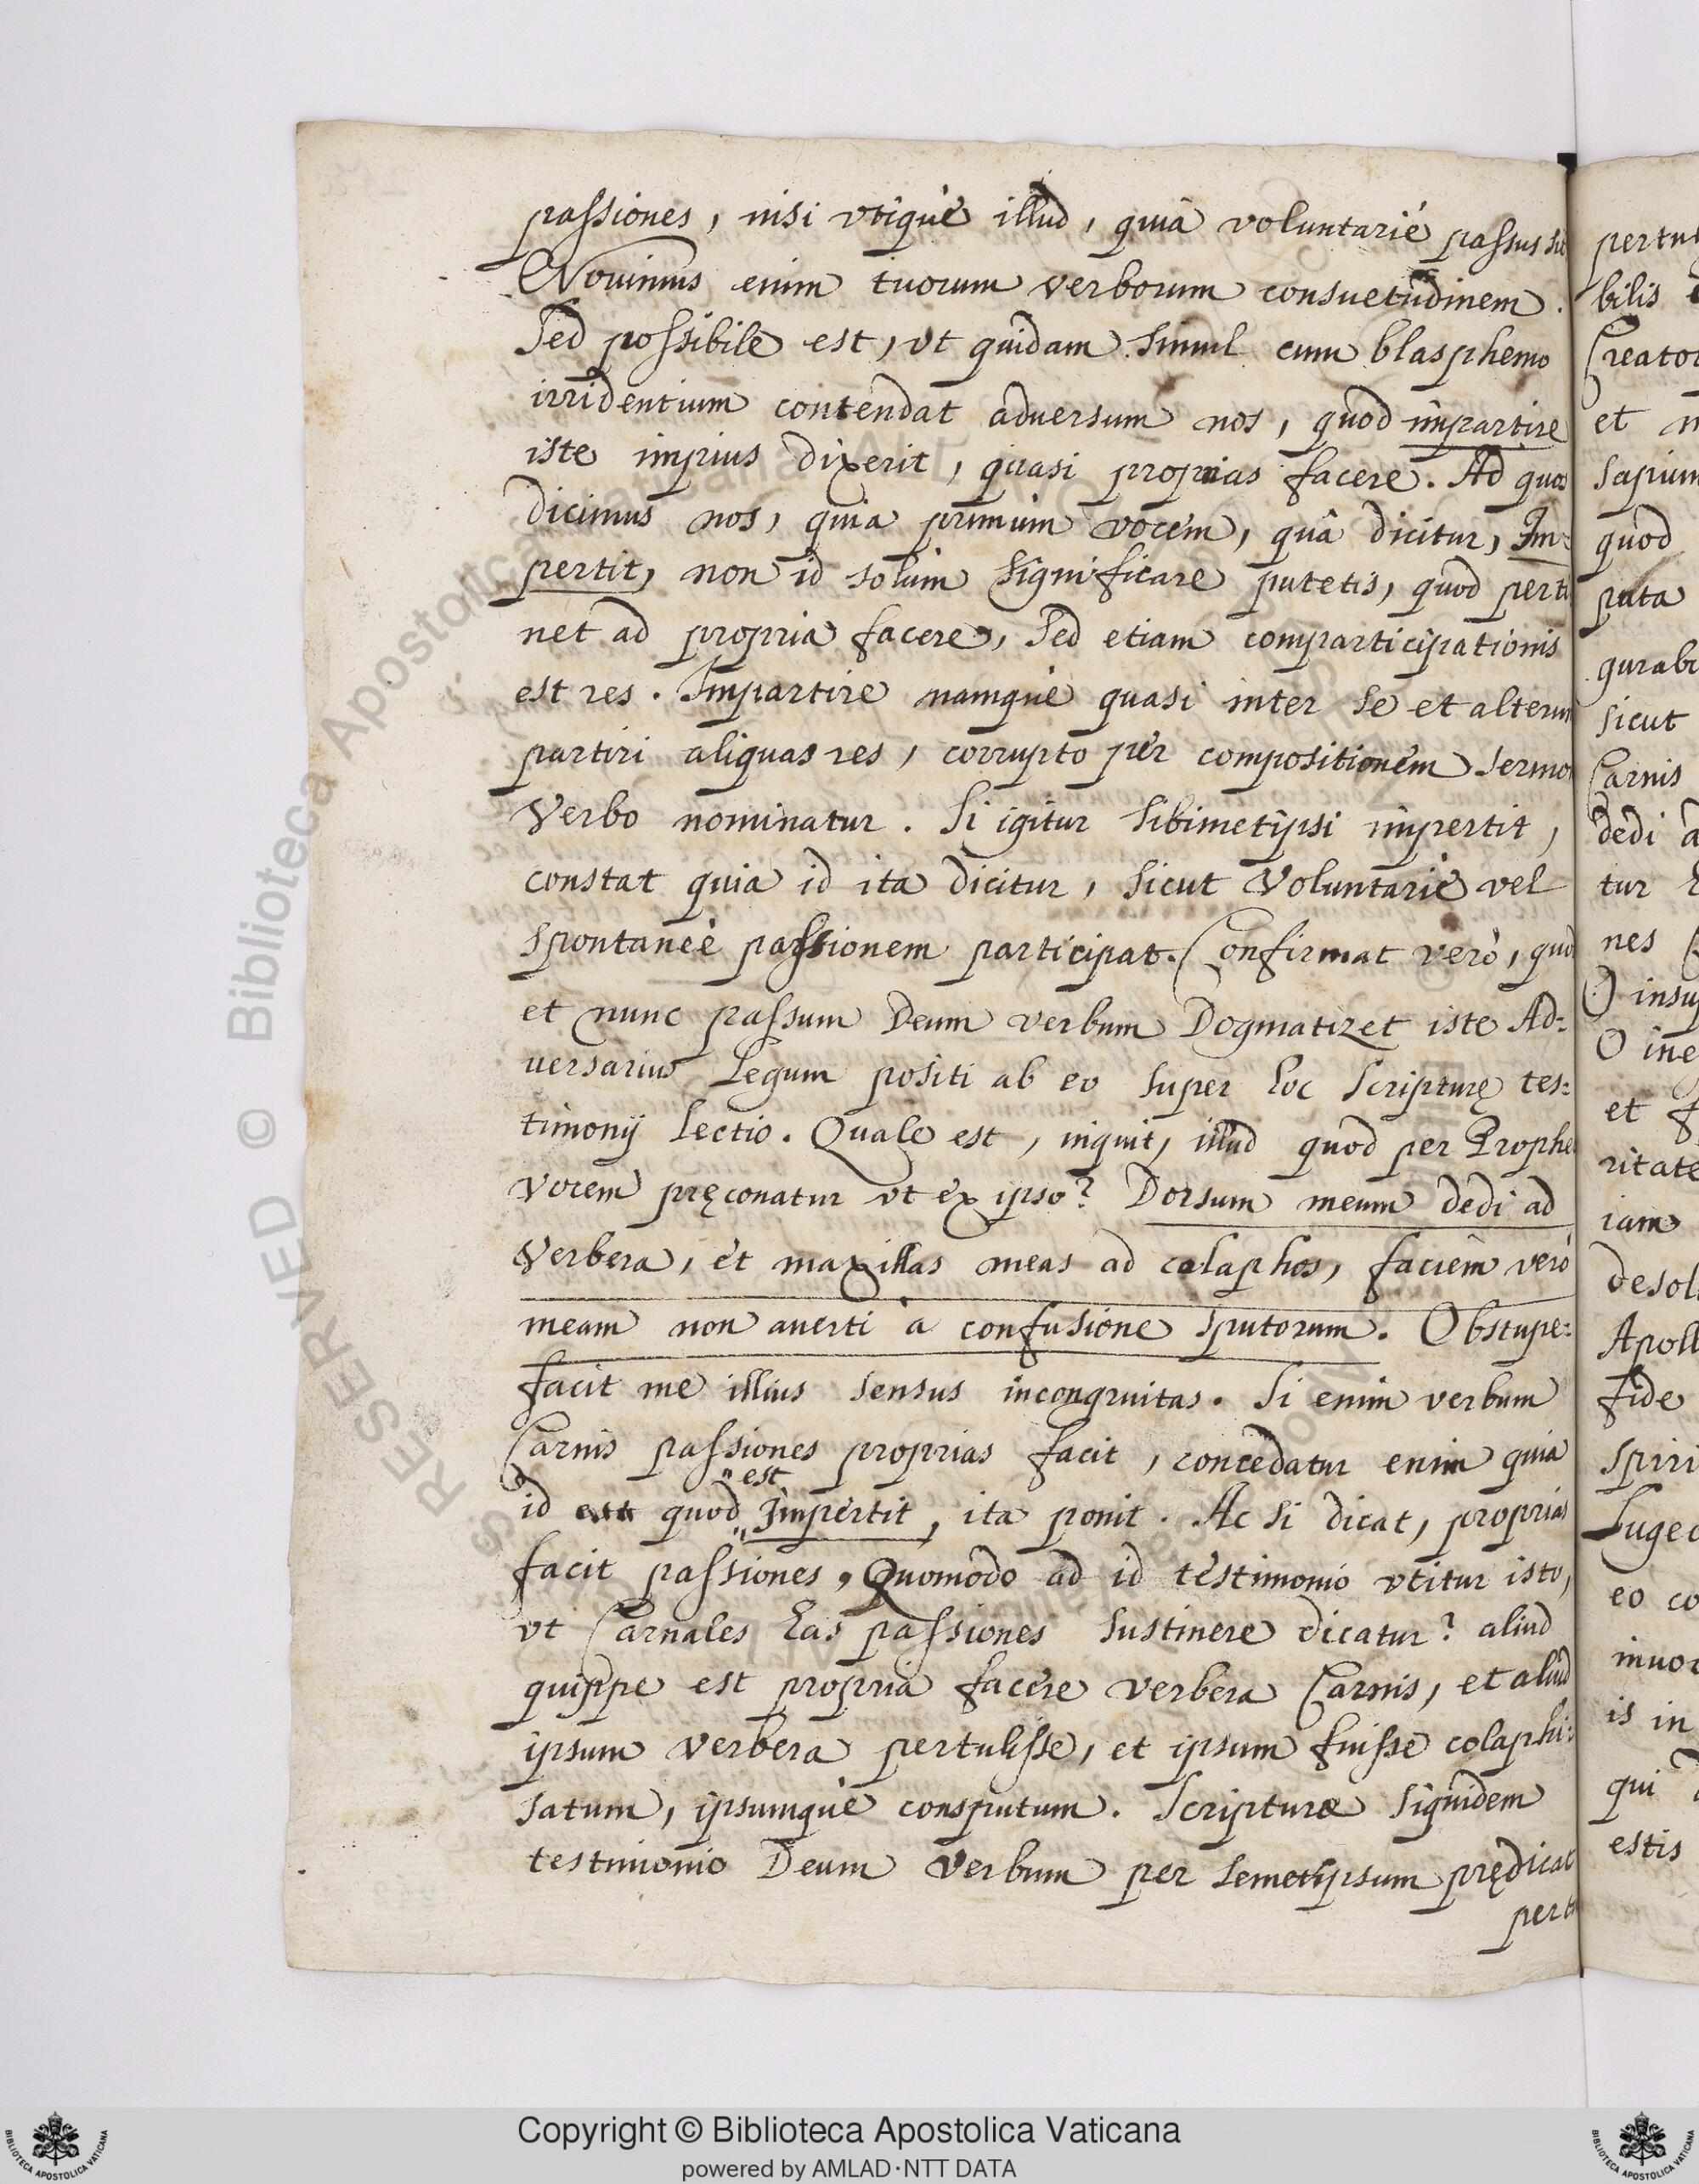 passiones, nisi vtiquè illud, quià voluntariè passus sit
Nouimus enim tuorum verborum consuetudinem.
Sed possibile est, vt quidam simul cum blasphemo
irridentium contendat aduersum nos, quod impartire
iste impius dixerit, quasi proprias facere. Ad quos
dicimus nos, quia primùm vocem, quâ dicitur, Im:
pertit, non id solùm significare putetis, quod perti
net ad propria facere, Sed etiam comparticipationis
est res. Impartire namquè quasi inter se et alterum
partiri aliquas res, corrupto per compositionem sermo
Verbo nominatur. Si igitur sibimetipsi impertit,
constat quia id ita dicitur, sicut Voluntariè vel
spontaneè passionem participat. Confirmat verò, quod
et nunc passum Deum verbum Dogmatizet iste Ad:
uersarius Legum positi ab eo super hoc Scripturę tes:
timonij Lectio. Quale est, inquit, illud quod per Prophe
vocem pręconatur vt ex ipso? Dorsum meum dedi ad
Verbera, et maxillas meas ad colaphos, faciem verò
meam non auerti à confusione sputorum. Obstupe:
facit me illius sensus incongruitas. Si enim verbum
Carnis passiones proprias facit, concedatur enim quia
est
id est quod Impertit, ita ponit. Ac si dicat, proprias
facit passiones, Quomodo ad id testimonio vtitur isto,
vt Carnales has passiones sustinere dicatur? aliud
quippe est propria facere verbera Carnis, et aliud
ipsum verbera pertulisse, et ipsum fuisse colaphi:
satum, ipsumquè consputum. Scripturæ siquidem
testimonio Deum Verbum per semetipsum prędicat
pert
pertul
bilis
Creator
et
sapium
quod
puta
gurabi
sicut
Carnis
dedi a
tur
nes
O insu
O ine
et f
ritate
iam
desol
Apoll
fide
spiri
Luge
eo co
inuo
is in
qui
estis
RESERVED © Biblioteca Apostolica Vaticana ALL RIGHTS RESERVED
Copyright © Biblioteca Apostolica Vaticana
powered by AMLAD·NTT DATA
BIBLIOTECA APOSTOLICA VATICANA
BIBLIOTECA APOSTOLICA VATICANA